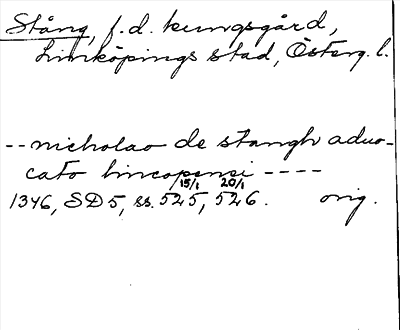 Stång, f.d. kungsgård,
Linköpings stad, Österg.l.
-- nicholao de stangh aduo-
cato lincopensi ----
15/1 20/1
1346, SD 5, ss. 525, 526. orig.